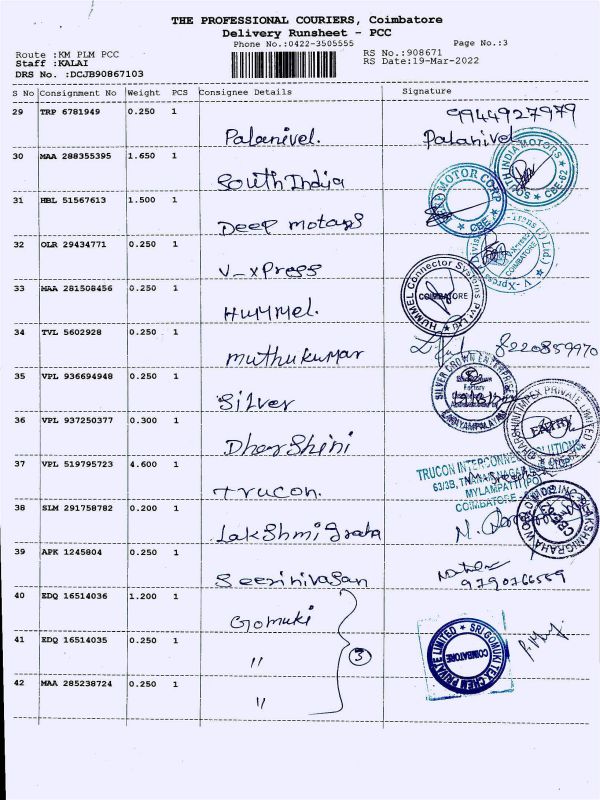 THE PROFESSIONAL COURIERS, Coimbatore
Delivery Runsheet - PCC
Phone No.:0422-3505555
Page No.:3
Route :KM PLM PCC
RS No.:908671
Staff :KALAI
RS Date:19-Mar-2022
DRS No. :DCJB90867103
S No Consignment No Weight PCS Consignee Details Signature
29 TRP 6781949 0.250 1 Palanivel. 9944927979
Palanivel
30 MAA 288355395 1.650 1 South India
SOUTH INDIA MOTORS CBE-62
31 HBL 51567613 1.500 1 Deep motors
MOTOR CORP CBE
32 OLR 29434771 0.250 1 V-xpress
V-Xpress COIMBATORE
33 MAA 281508456 0.250 1 Hummel.
HUMMEL Connector Systems Pvt Ltd COIMBATORE
34 TVL 5602928 0.250 1 muthukumar 8220859970
35 VPL 936694948 0.250 1 Silver
SILVER CROWN ENTERPRISE
36 VPL 937250377 0.300 1 Dharshini
DHARSHINI IMPEX PRIVATE LIMITED ENTRY
37 VPL 519795723 4.600 1 Trucon.
TRUCON INTERCONNECT SOLUTIONS
MYLAMPATTI (PO)
COIMBATORE
38 SLM 291758782 0.200 1 Lakshmi graha
LAKSHMIGRAHA
39 APK 1245804 0.250 1 Seerinivasan
40 EDQ 16514036 1.200 1 Gomuki
41 EDQ 16514035 0.250 1 " 3
SRI GOMUKI TEX CHEM PRIVATE LIMITED COIMBATORE
42 MAA 285238724 0.250 1 "